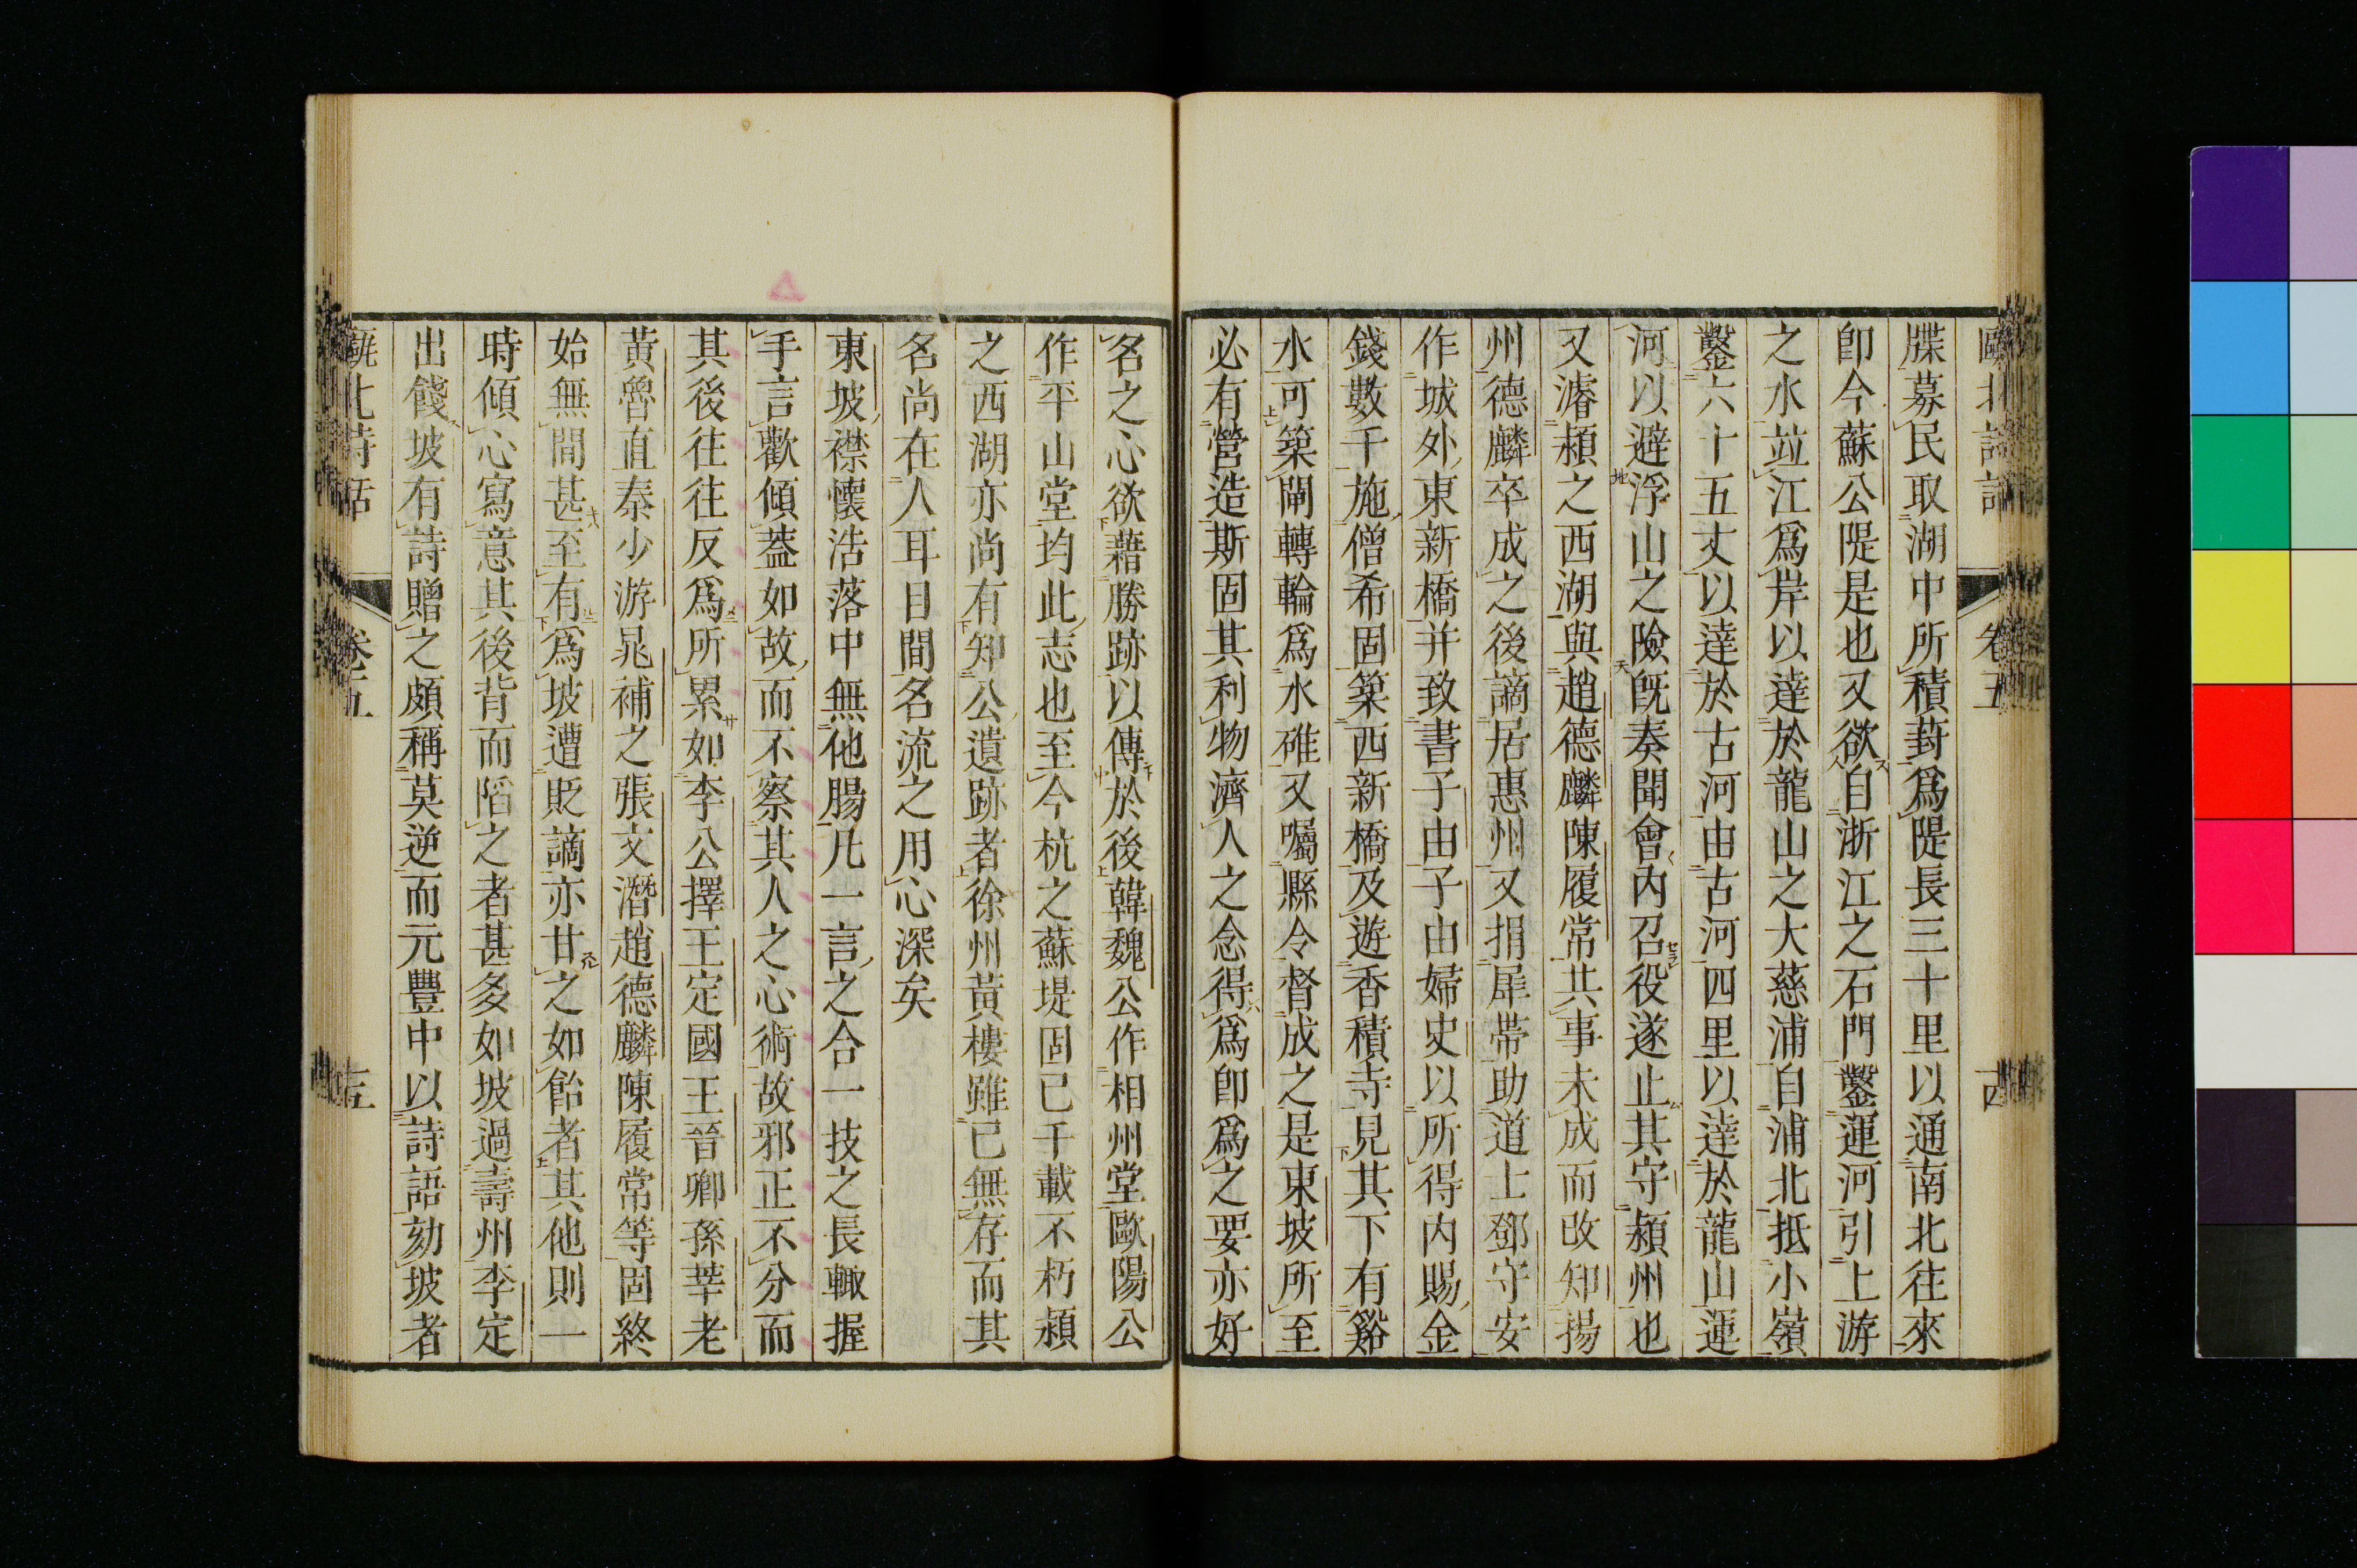 牒募民取湖中所積葑爲隄長三十里以通南北往來
卽今蘇公隄是也又欲自浙江之石門鑿運河引上游
之水竝江爲岸以達於龍山之大慈浦自浦北抵小嶺
鑿六十五丈以達於古河由古河四里以達於龍山運
河以避浮山之險旣奏聞會內召役遂止其守潁州也
又濬潁之西湖與趙德麟陳履常共事未成而改知揚
州德麟卒成之後謫居惠州又捐犀帶助道士鄧守安
作城外東新橋并致書子由子由婦史以所得內賜金
錢數千施僧希固築西新橋及遊香積寺見其下有谿
水可築閘轉輪爲水碓又囑縣令督成之是東坡所至
必有營造斯固其利物濟人之念得爲卽爲之要亦好
名之心欲藉勝跡以傳於後韓魏公作相州堂歐陽公
作平山堂均此志也至今杭之蘇堤固已千載不朽潁
之西湖亦尚有知公遺跡者徐州黃樓雖已無存而其
名尚在人耳目間名流之用心深矣
東坡襟懷浩落中無他腸凡一言之合一技之長輙握
手言歡傾蓋如故而不察其人之心術故邪正不分而
其後往往反爲所累如李公擇王定國王晉卿孫莘老
黃魯直秦少游晁補之張文潛趙德麟陳履常等固終
始無間甚至有爲坡遭貶謫亦甘之如飴者其他則一
時傾心寫意其後背而陷之者甚多如坡過壽州李定
出餞坡有詩贈之頗稱莫逆而元豐中以詩語劾坡者
甌北詩話
卷五